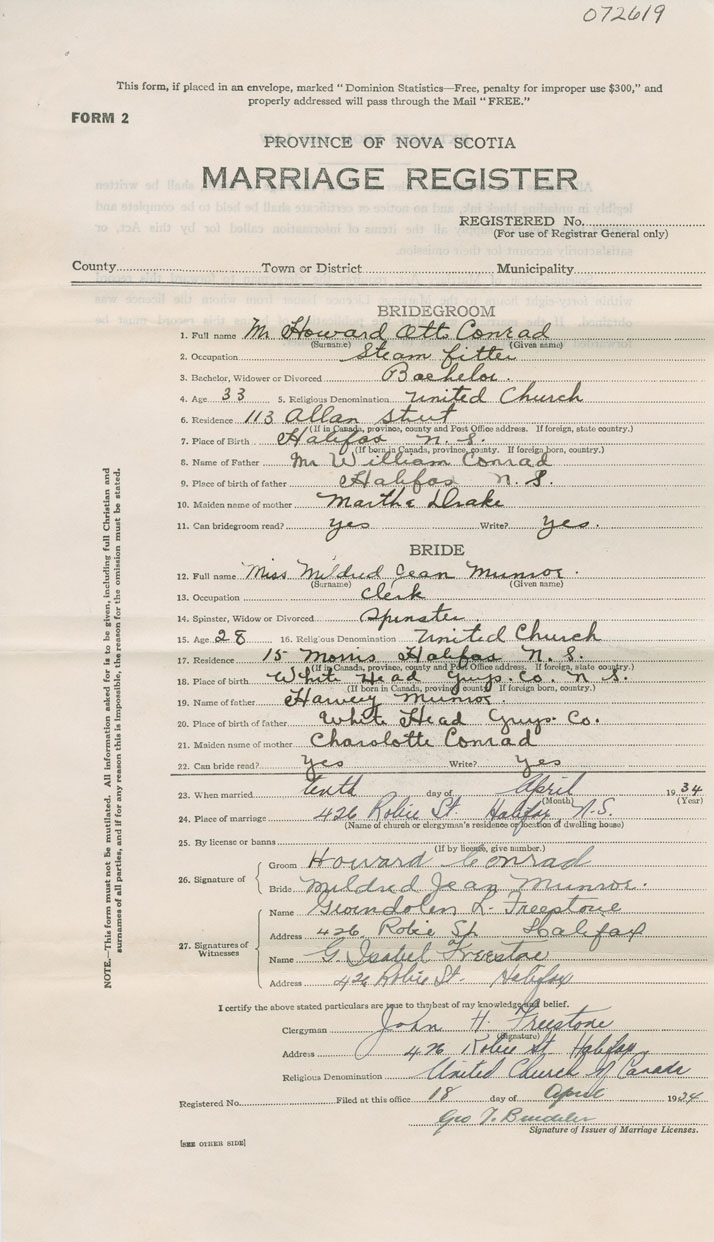 072619
This form, if placed in an envelope, marked "Dominion Statistics—Free, penalty for improper use $300," and
properly addressed will pass through the Mail "FREE."
FORM 2
PROVINCE OF NOVA SCOTIA
MARRIAGE REGISTER
REGISTERED No.
(For use of Registrar General only)
County Town or District Municipality
BRIDEGROOM
1. Full name Mr Howard Otto Conrad
(Surname) (Given name)
2. Occupation Steam fitter
3. Bachelor, Widower or Divorced Bachelor.
4. Age 33 5. Religious Denomination United Church
6. Residence 113 Allan Street
(If in Canada, province, county and Post Office address. If foreign, state country.)
7. Place of Birth Halifax N. S.
(If born in Canada, province, county. If foreign born, country.)
8. Name of Father Mr William Conrad
9. Place of birth of father Halifax N. S.
10. Maiden name of mother Martha Drake
11. Can bridegroom read? yes Write? yes.
BRIDE
12. Full name Miss Mildred Jean Munroe.
(Surname) (Given name)
13. Occupation Clerk
14. Spinster, Widow or Divorced Spinster
15. Age 28 16. Religious Denomination United Church
17. Residence 15 Morris Halifax N. S.
(If in Canada, province, county and Post Office address. If foreign, state country.)
18. Place of birth White Head Guys. Co. N S.
(If born in Canada, province, county. If foreign born, country.)
19. Name of father Harvey Munroe
20. Place of birth of father White Head Guys. Co.
21. Maiden name of mother Charolotte Conrad
22. Can bride read? yes Write? yes
23. When married tenth day of April 1934
(Month) (Year)
24. Place of marriage 426 Robie St. Halifax N.S.
(Name of church or clergyman's residence or location of dwelling house)
25. By license or banns
(If by license, give number.)
26. Signature of Groom Howard Conrad
Bride Mildred Jean Munroe.
27. Signatures of Witnesses Name Gwendolen L. Freestone
Address 426 Robie St. Halifax
Name G. Isabel Freestone
Address 426 Robie St. Halifax
I certify the above stated particulars are true to the best of my knowledge and belief.
Clergyman John H. Freestone
(Signature)
Address 426 Robie St Halifax
Religious Denomination United Church of Canada
Registered No. Filed at this office 18 day of April 1934
Geo
Signature of Issuer of Marriage Licenses.
[SEE OTHER SIDE]
NOTE.—This form must not be mutilated. All information asked for is to be given, including full Christian and
surnames of all parties, and if for any reason this is impossible, the reason for the omission must be stated.